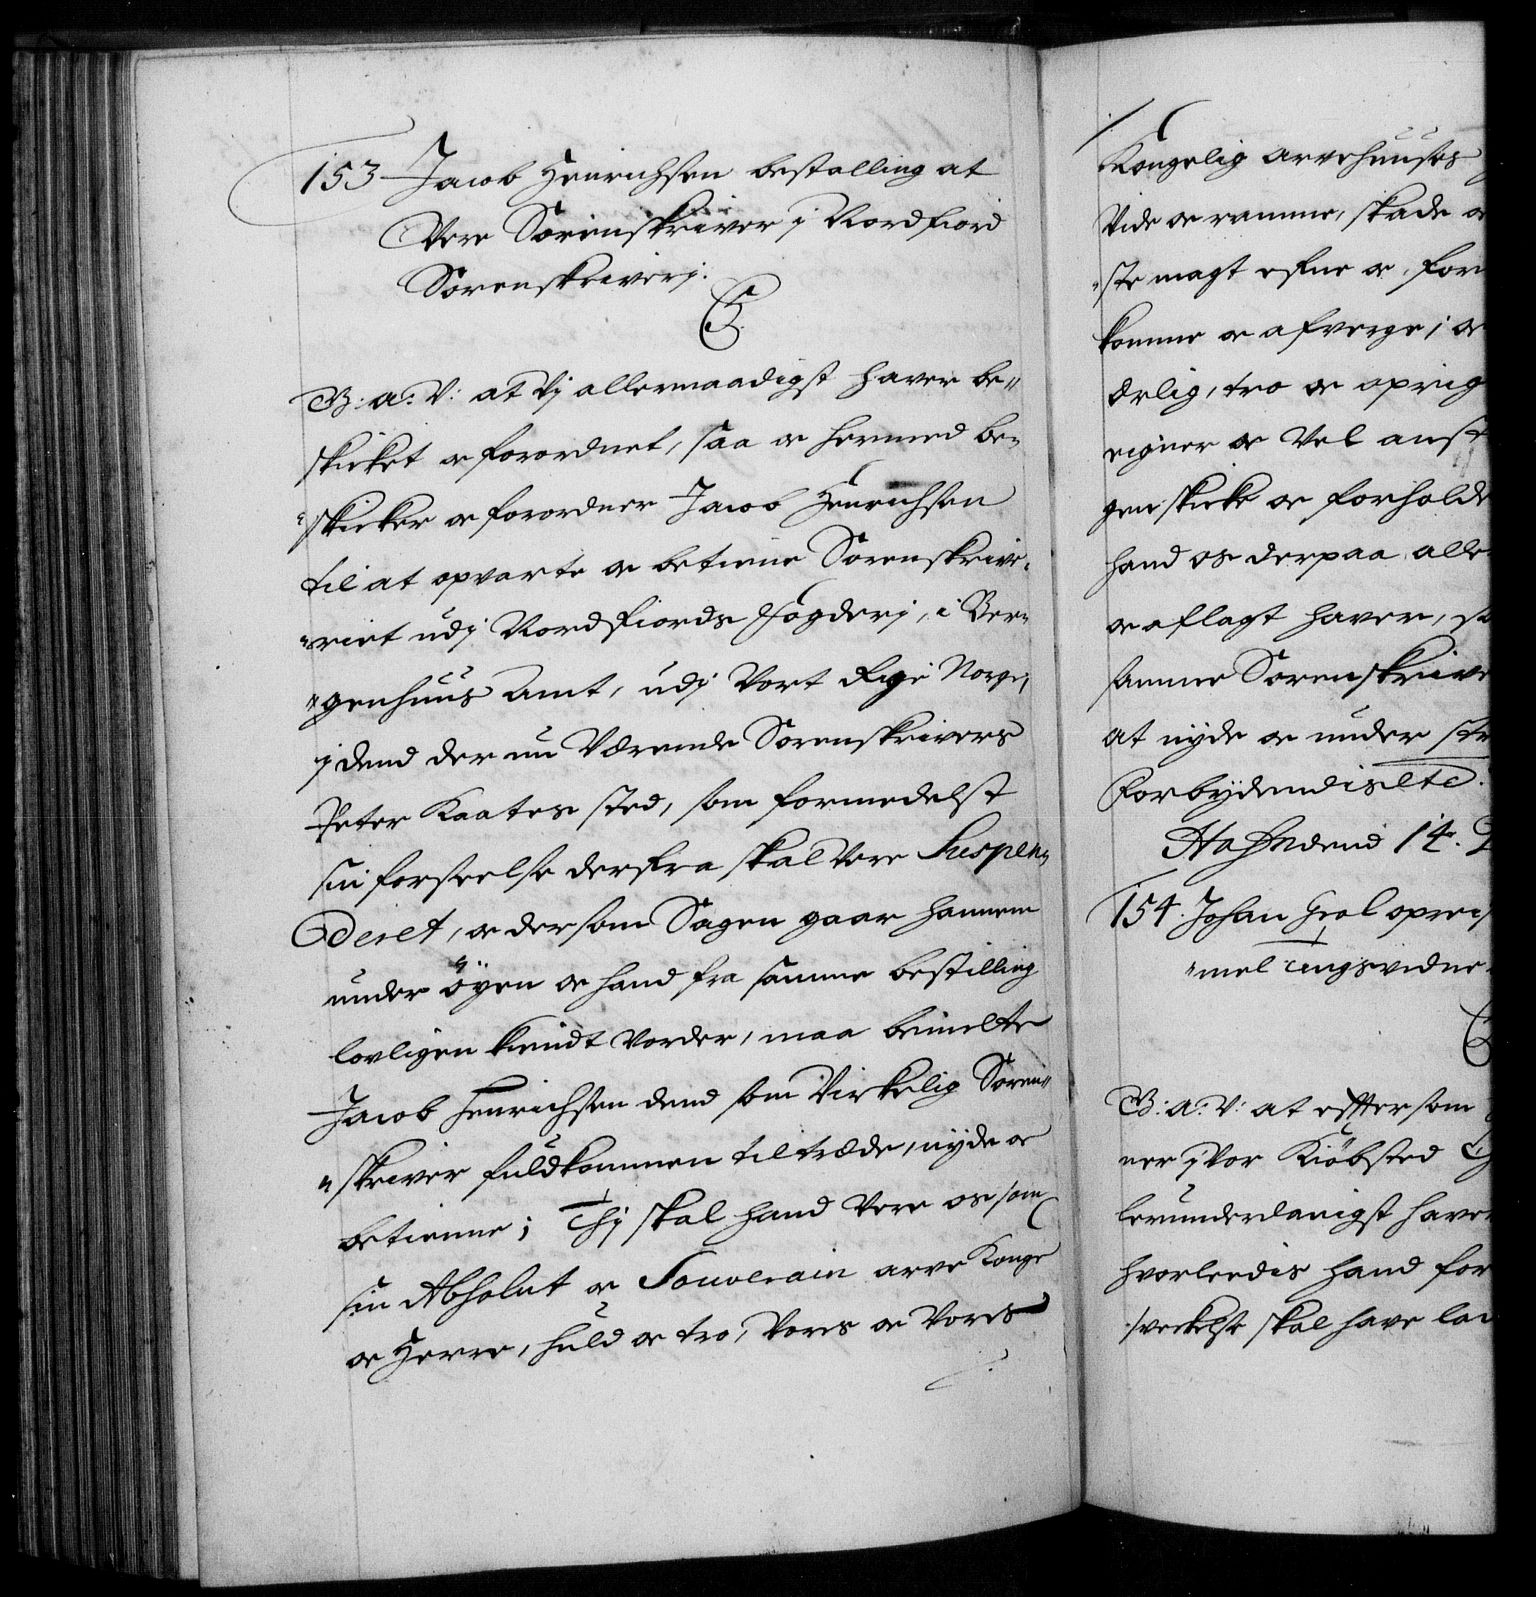 153 Jacob Henrichsen bestalling at
Vere Sorenskriver j Nordfiord
Sorenskriverj.
C5.
G: a: V: at Vj allernaadigst haver be„
skicket oc forordnet, saa oc hermed be„
„skicker oc forordner Jacob Henrichsen
til at opvarte oc betiene Sorenskrive„
„riet udj Nordfiords Fogderj, i Ber„
„genhuus Amt, udj Vort Rige Norge,
j dend der nu Værende Sorenskrivers
Peter Kaates sted, som formedelst
sin forseelse derfra skal Vere Suspen„
deret, oc dersom Sagen gaar hannem
under öyen oc hand fra samme bestilling
lovligen kiendt vorder, maa bemelte
Jacob Henrichsen dend som Virkelig Soren„
„skriver fuldkommen tiltræde, nyde oc
betienne; Thj skal hand Vere os som
sin Absolut oc Souverain arve Konge
oc Herre, huld oc tro, Vores oc Vores
Kongelig arvehuuses
Vide oc ramme, skade oc
„ste magt efne oc, for
komme oc afverge; oc
ærlig, tro oc oprig
eigner oc Vel anst
gen skicke oc forholde
hand os derpaa alle
oc aflagt haver, sa
samme Sorenskrive
at nyde oc under str
Forbydendis etc.
Hafn dend 14.
154. Johan opreis
„mel Tingsvidne
C
G: a: V: at effter som
ner j Vor Kiöbsted
lerunderdanigst haver
hvorledis hand for
sverkelse skal have lad